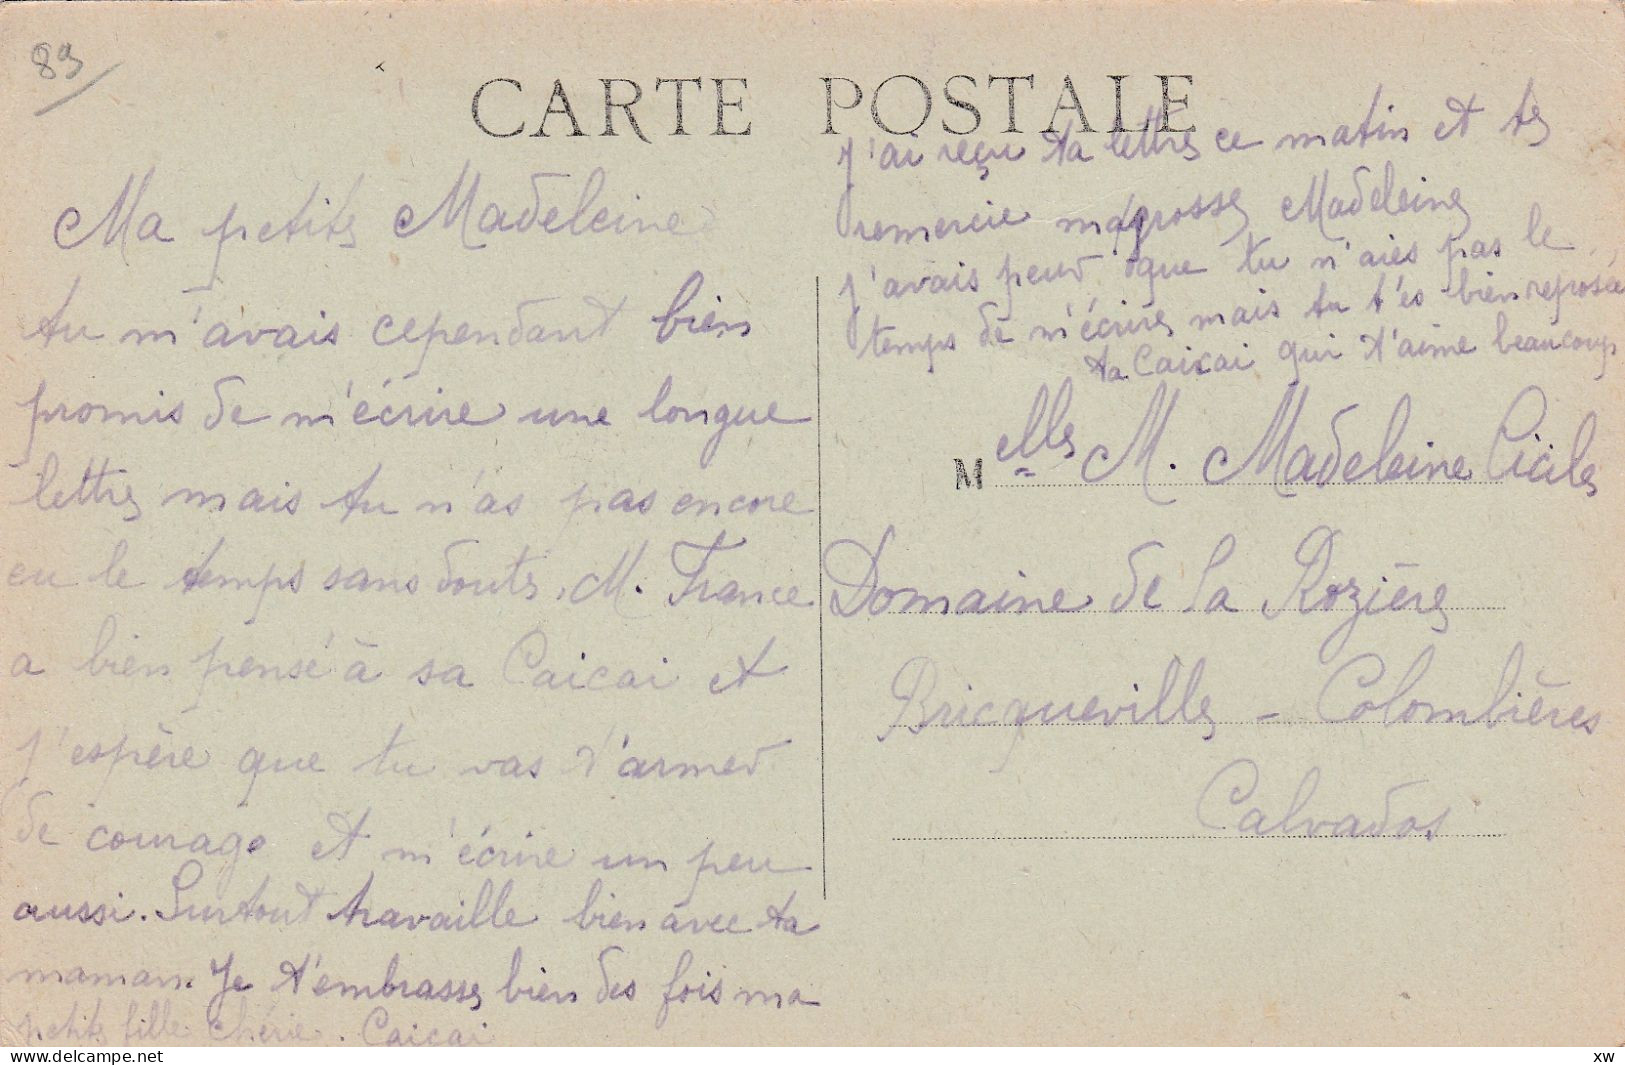 89
CARTE POSTALE
Ma petite Madeleine
tu m'avais cependant bien
promis de m'écrire une longue
lettre mais tu n'as pas encore
eu le temps sans doute. M. France
a bien pensé à sa Caicai et
j'espère que tu vas t'armer
de courage et m'écrire un peu
aussi. Surtout travaille bien avec ta
maman. Je t'embrasse bien des fois ma
petite fille chérie. Caicai
J'ai reçu ta lettre ce matin et te
remercie ma grosse Madeleine
j'avais peur que tu n'aies pas le
temps de m'écrire mais tu t'es bien reposée
ta Caicai qui t'aime beaucoup
Melle M. Madeleine
Domaine de la Rozière
Bricqueville - Colombières
Calvados
www.delcampe.net
xw